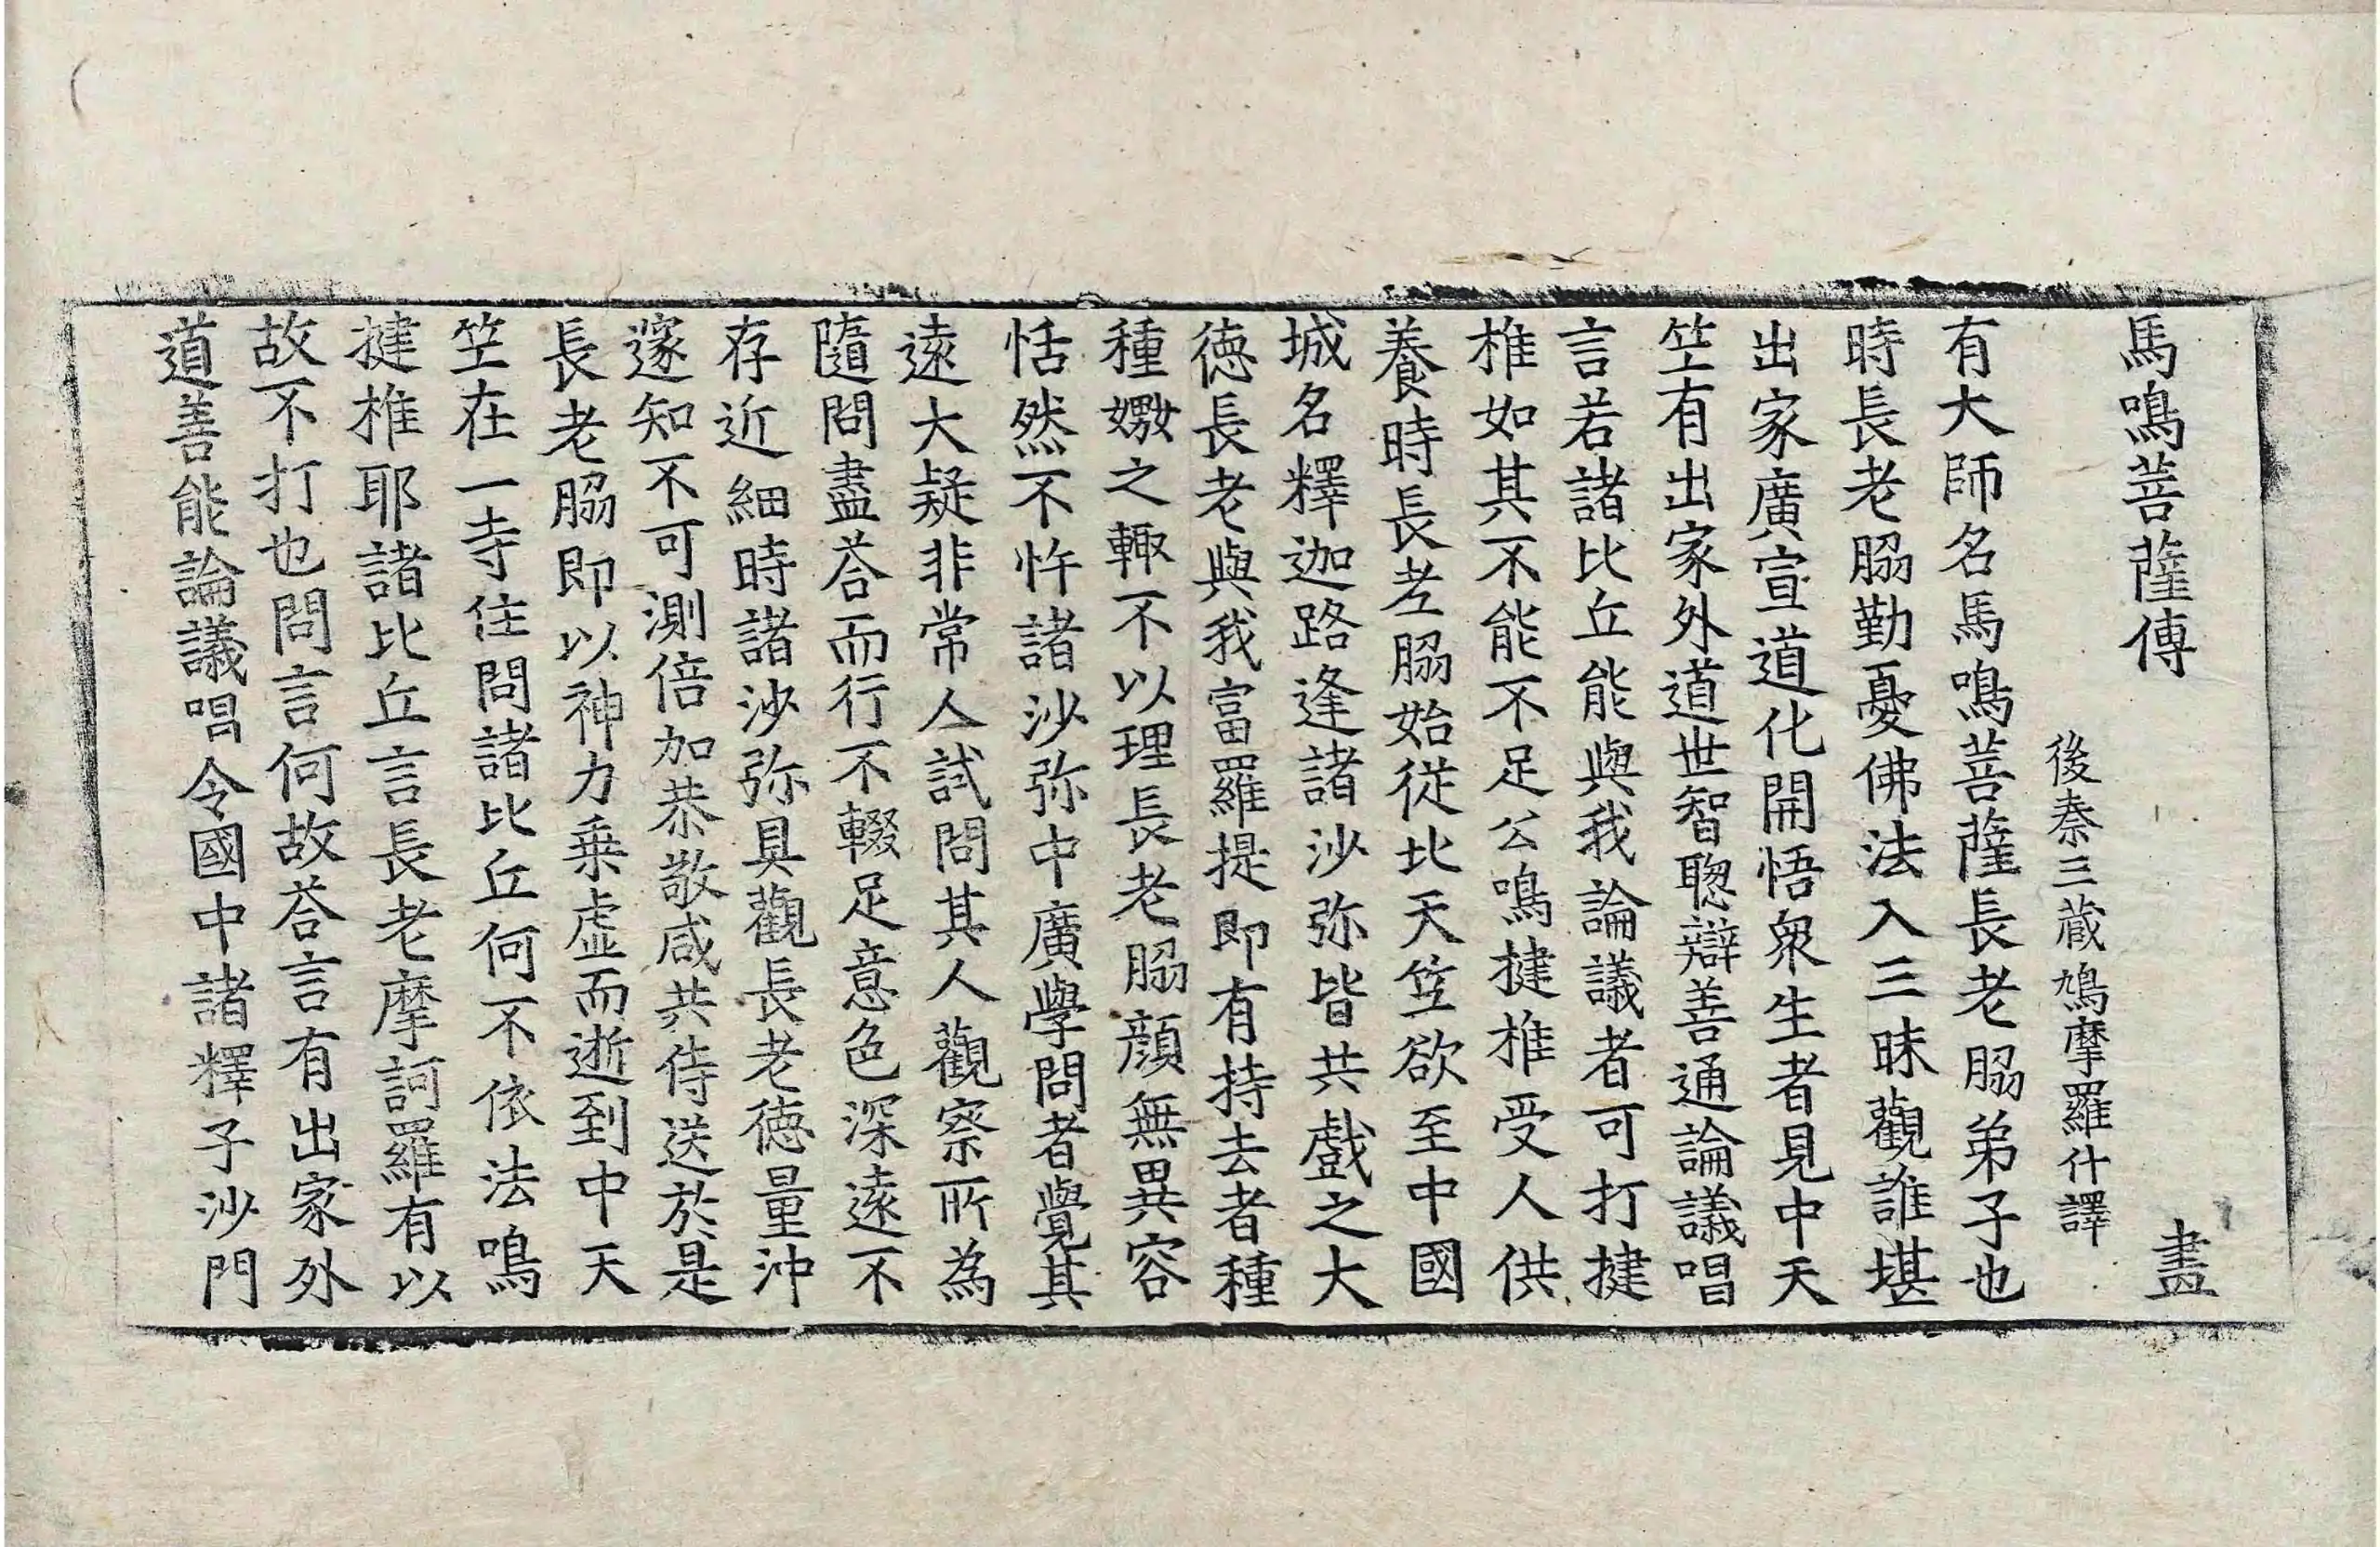 馬鳴菩薩傳　畫
後秦三藏鳩摩羅什譯
有大師名馬鳴菩薩長老脇弟子也
時長老脇勤憂佛法入三昧觀誰堪
出家廣宣道化開悟衆生者見中天
竺有出家外道世智聦辯善通論議唱
言若諸比丘能與我論議者可打揵
椎如其不能不足公鳴揵椎受人供
養時長老脇始從北天竺欲至中國
城名釋迦路逢諸沙弥皆共戲之大
德長老與我富羅提即有持去者種
種嬲之輙不以理長老脇顔無異容
恬然不忤諸沙弥中廣學問者覺其
遠大疑非常人試問其人觀察所為
隨問盡荅而行不輟足意色深遠不
存近細時諸沙弥具觀長老德量沖
邃知不可測倍加恭敬咸共侍送於是
長老脇即以神力乗虛而逝到中天
竺在一寺住問諸比丘何不依法鳴
揵椎耶諸比丘言長老摩訶羅有以
故不打也問言何故荅言有出家外
道善能論議唱令國中諸釋子沙門